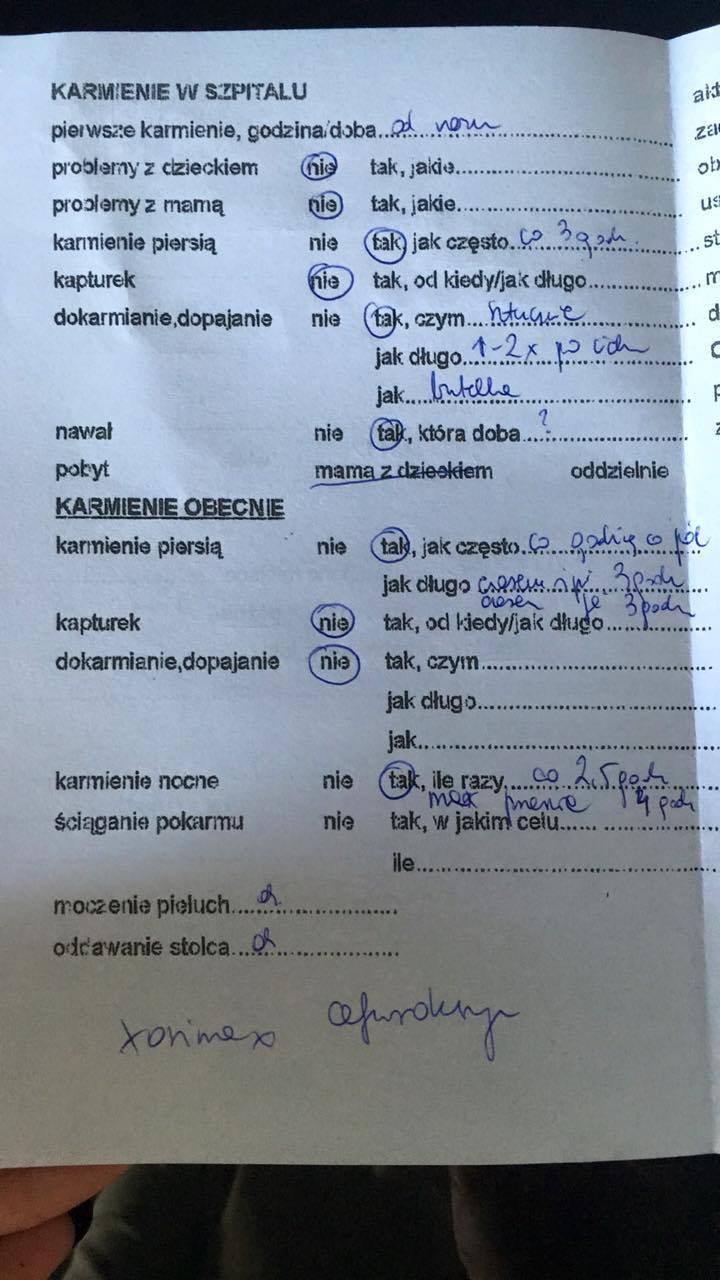 KARMIENIE W SZPITALU
pierwsze karmienie, godzina/doba...od razu
problemy z dzieckiem nie tak, jakie
problemy z mamą nie tak, jakie
karmienie piersią nie tak, jak często co 3 godz.
kapturek nie tak, od kiedy/jak długo
dokarmianie,dopajanie nie tak, czym sztuczne
jak długo 1-2x po
jak butelka
nawał nie tak, która doba ?
pobyt mama z dzieckiem oddzielnie
KARMIENIE OBECNIE
karmienie piersią nie tak, jak często co godzinę co pół
jak długo czasem śpi 3 godz
czasem je 3 godz
kapturek nie tak, od kiedy/jak długo
dokarmianie,dopajanie nie tak, czym
jak długo
jak
karmienie nocne nie tak, ile razy co 2,5 godz
max 4 godz
ściąganie pokarmu nie tak, w jakim celu
ile
moczenie pieluch
oddawanie stolca
xorimax
akt
za
ob
us
st
m
d